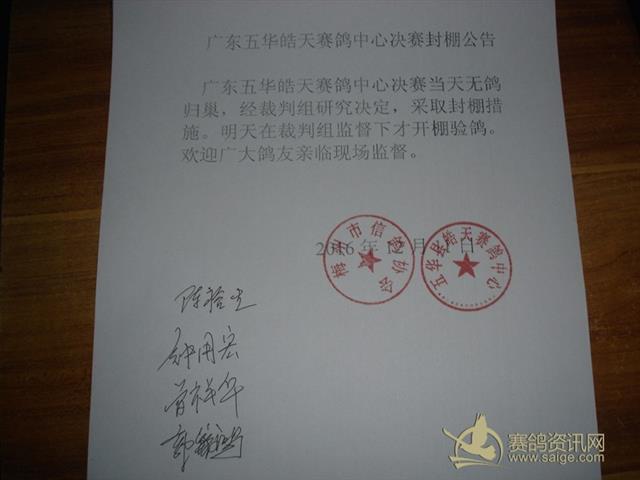 广东五华皓天赛鸽中心决赛封棚公告
广东五华皓天赛鸽中心决赛当天无鸽
归巢，经裁判组研究决定，采取封棚措
施。明天在裁判组监督下才开棚验鸽。
欢迎广大鸽友亲临现场监督。
梅州市信鸽协会
五华县皓天赛鸽中心
2016年12月1日
钟用宏
曾祥华
赛鸽资讯网
www.saige.com